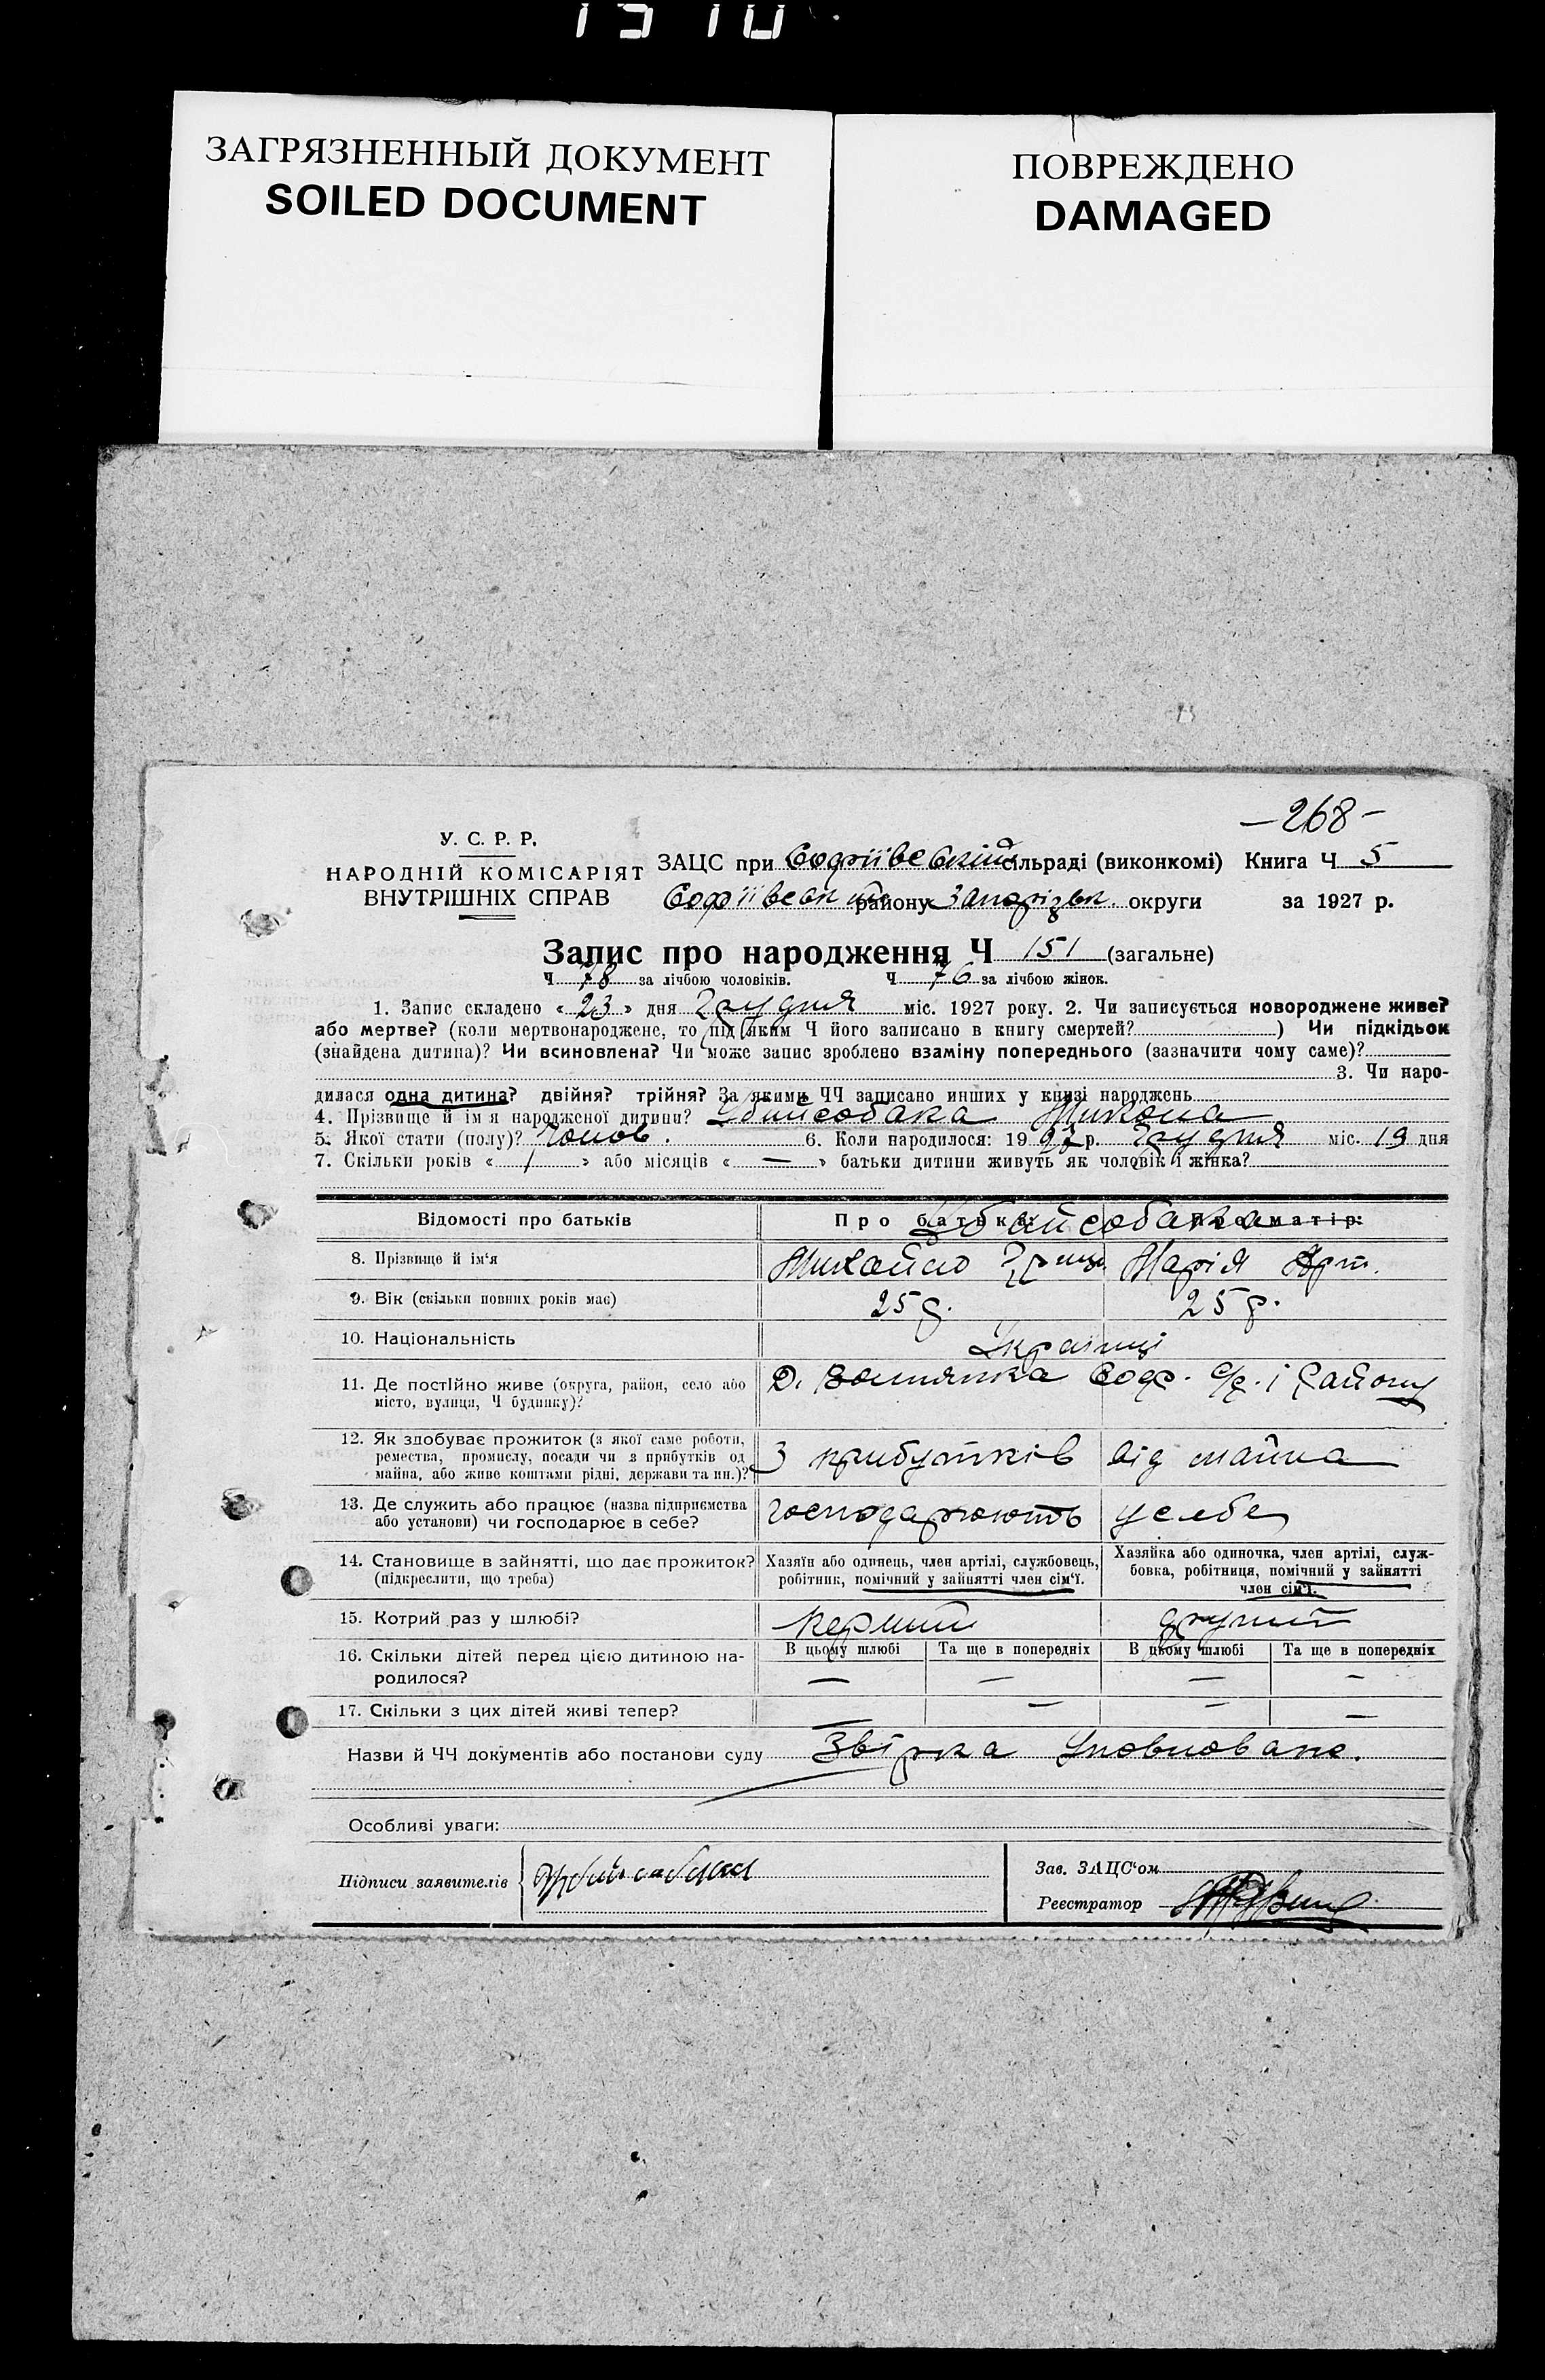 1510
ЗАГРЯЗНЕННЫЙ ДОКУМЕНТ
SOILED DOCUMENT
ПОВРЕЖДЕНО
DAMAGED
—268—
У. С. Р. Р.
НАРОДНІЙ КОМІСАРІЯТ
ВНУТРІШНІХ СПРАВ
ЗАЦС при Софіївській сільраді (виконкомі) Книга Ч 5
Софіївськ району Запорізьк. округи за 1927 р.
Запис про народження Ч 151 (загальне)
Ч 78 за лічбою чоловіків. Ч 76 за лічбою жінок.
1. Запис складено «23» дня Грудня міс. 1927 року. 2. Чи записується новороджене живе?
або мертве? (коли мертвонароджене, то під яким Ч його записано в книгу смертей? ) Чи підкідьок
(знайдена дитина)? Чи всиновлена? Чи може запис зроблено взаміну попереднього (зазначити чому саме)?
3. Чи наро-
дилася одна дитина? двійня? трійня? За якими ЧЧ записано инших у книзі народжень
4. Прізвище й ім'я народженої дитини? Убийсобака Микола
5. Якої стати (полу)? Чолов. 6. Коли народилося: 1927 р. Грудня міс. 19 дня
7. Скільки років «1» або місяців «—» батьки дитини живуть як чоловік і жінка?
Відомості про батьків Про батька: Про матір:
Убийсобака
8. Прізвище й ім'я Михайло Марія Арт.
9. Вік (скільки повних років має) 25 р. 25 р.
10. Національність Українці
11. Де постійно живе (округа, район, село або Соф. с/р. і Району
місто, вулиця, Ч будинку)?
12. Як здобуває прожиток (з якої саме роботи, З прибутків від майна
ремества, промислу, посади чи з прибутків од
майна, або живе коштами рідні, держави та ин.)?
13. Де служить або працює (назва підприємства господарюють у себе
або установи) чи господарює в себе?
14. Становище в зайнятті, що дає прожиток? Хазяїн або одинець, член артілі, службовець, Хазяйка або одиночка, член артілі, служ-
(підкреслити, що треба) робітник, помічний у зайнятті член сім'ї. бовка, робітниця, помічний у зайнятті
член сім'ї.
15. Котрий раз у шлюбі? перший другий
16. Скільки дітей перед цією дитиною на- В цьому шлюбі Та ще в попередніх В цьому шлюбі Та ще в попередніх
родилося? — — — —
17. Скільки з цих дітей живі тепер? — — — —
Назви й ЧЧ документів або постанови суду Звірка
Особливі уваги:
Підписи заявителів
Зав. ЗАЦС'ом
Реєстратор